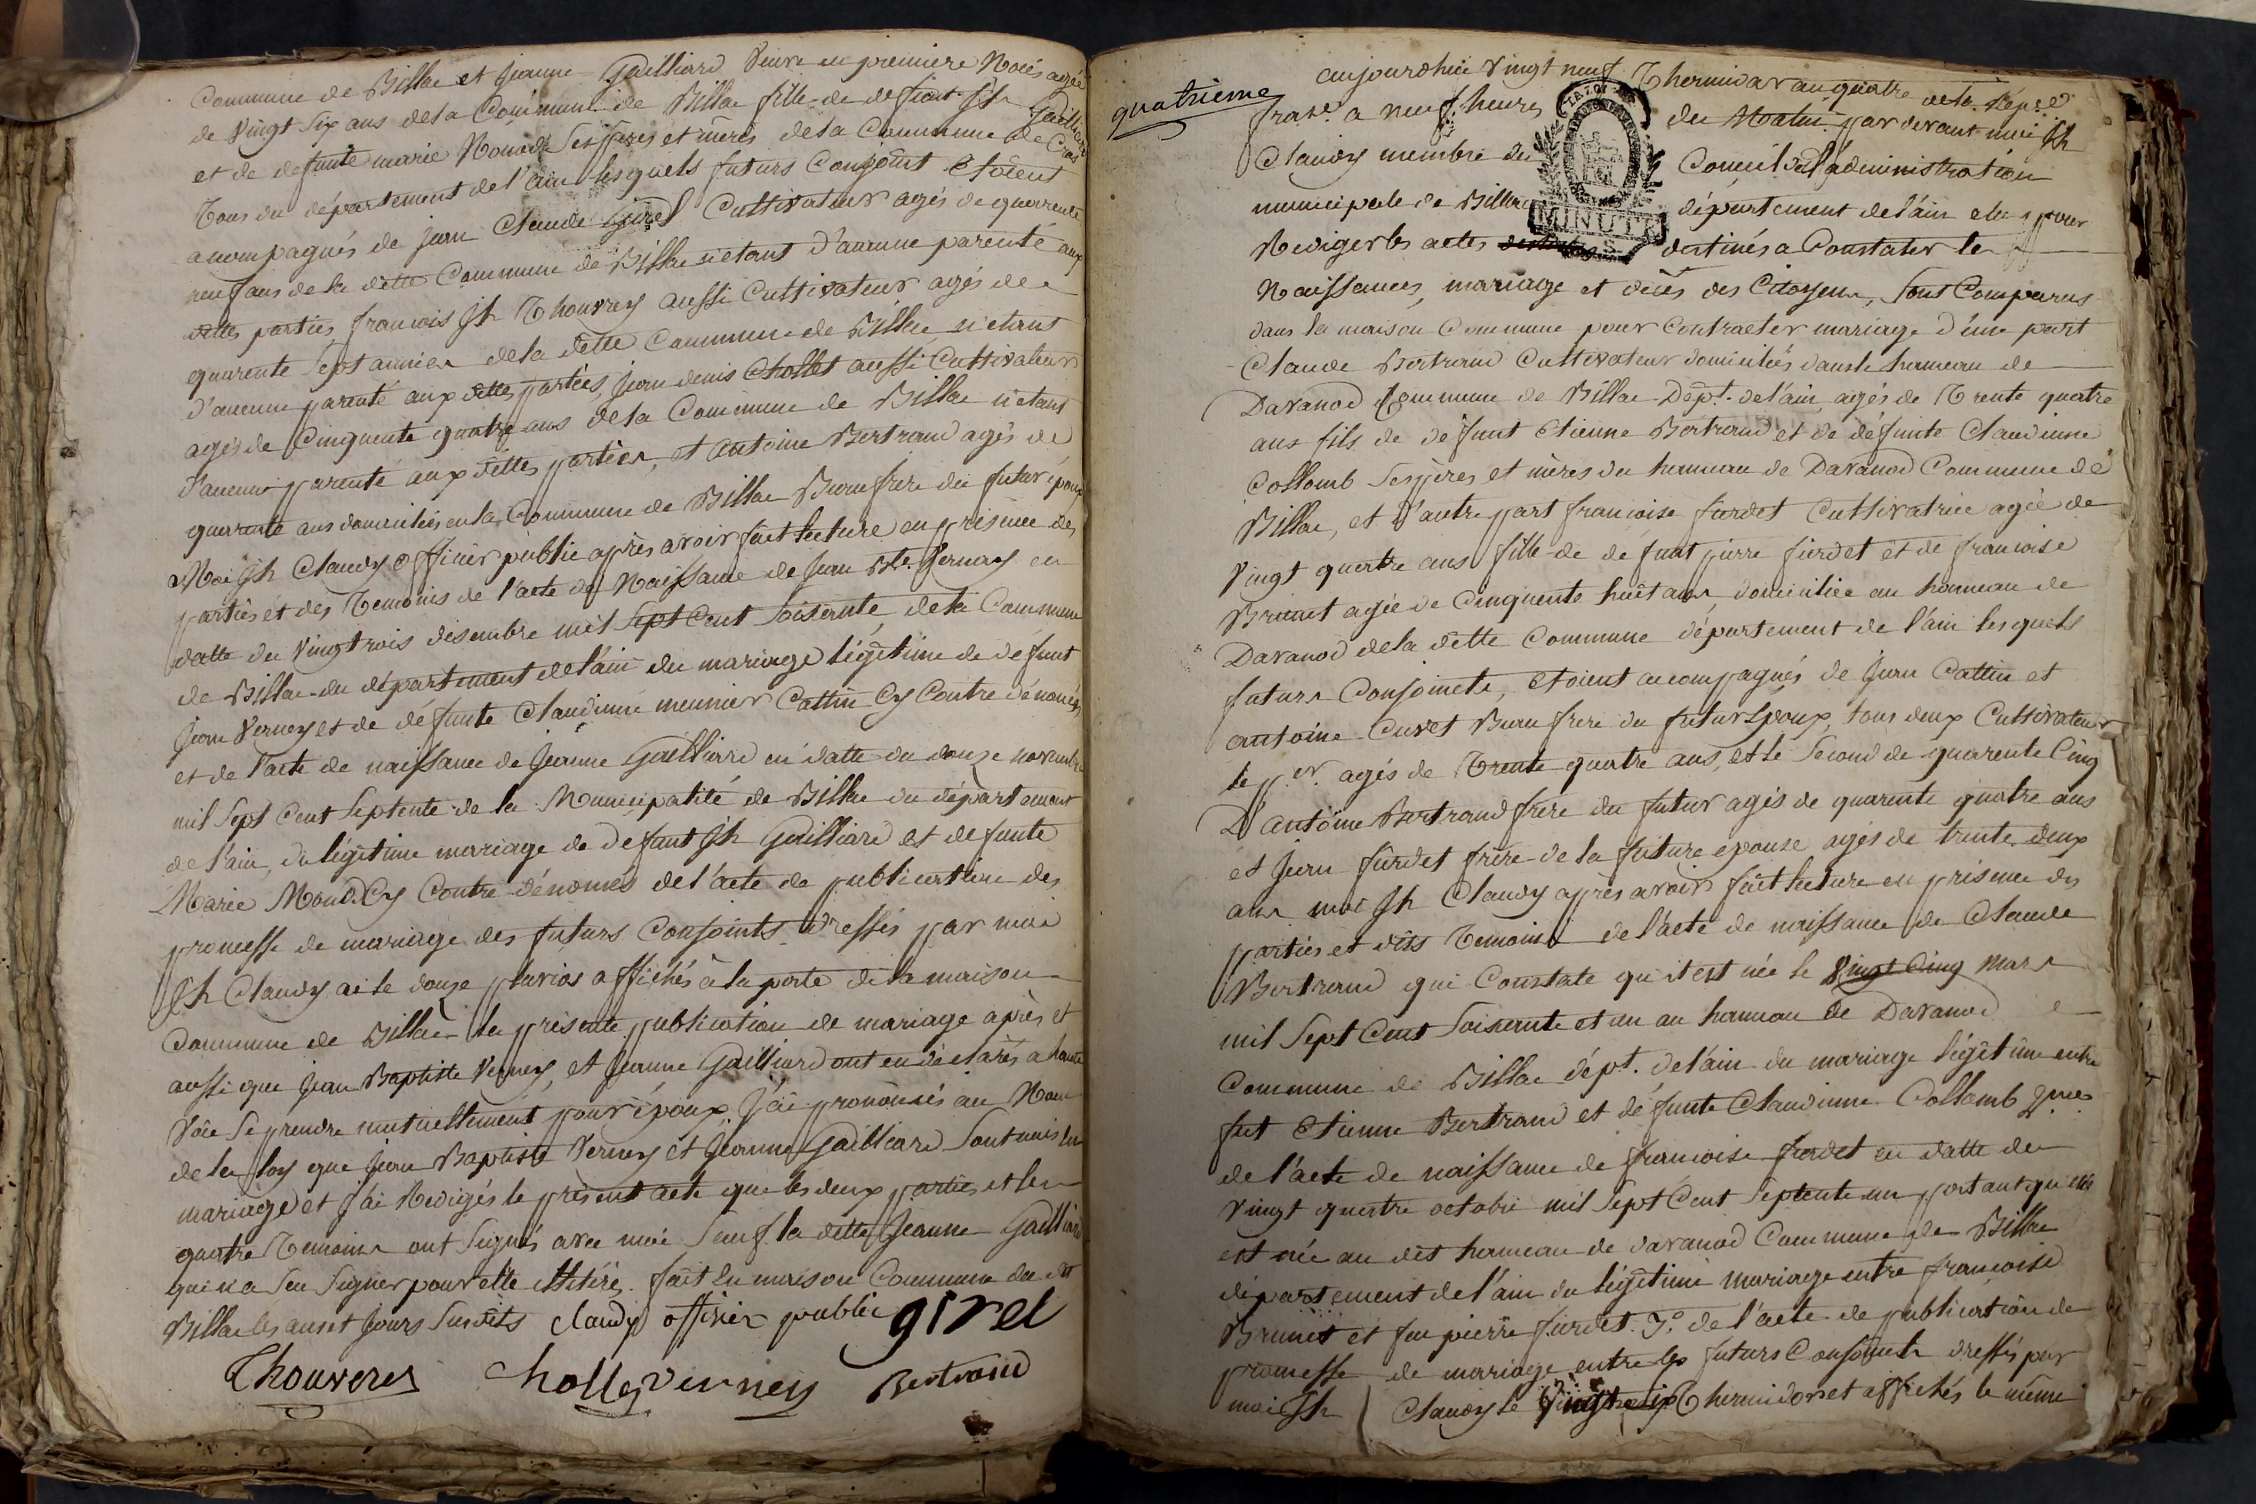 Commune de Billia et Jeanne Gailliard Veuve en premiere Noces agée
de Vingt Six ans dela Commune de Billia fille de defunt Jh Gailliard
et de defunte marie Ses peres et mères dela Commune de
Tous du département del'ain lesquels futurs Conjoint Etoient
acompagnés de jean Claude girel Cultivateur agés de quarente
neuf ans dela ditte Commune de Billia n'etant d'aucune parenté aux
dittes parties francois Jh Thouvrey aussi Cultivateur agés de
quarente Sept années dela ditte Commune de Billia n'etant
d'aucune parenté aux dittes parties, jean denis Chollet aussi Cultivateur
agés de Cinquente quatre ans dela Commune de Billia n'etant
d'aucune parenté aux dittes parties, et antoine Bertrand agés de
quarente ans domiciliés en la Commune de Billia Beaufrere du futur époux
Moi Jh Claudy officier public après avoir fait lecture en présence des
parties et des Temoins de l'acte de Naissance de Jean Bte Verney en
datte du Vingtrois désembre mil Sept Cent Soisente, dela Commune
de Billia du département del'ain du mariage légitime de défunt
Jean Verney et de défunte Claudinne meunier Cattin Cy Contre dénomés
et de l'acte de naissance de Jeanne Gailliard en datte du douze novembre
mil Sept Cent Septente de la Municipalité de Billia du département
de l'ain, du légitime mariage de defunt Jh Gailliard et defunte
Marie Cy Contre dénomés de l'acte de publication des
promesse de mariage des futurs Conjoints dressés par moi
Jh Claudy ai le douze pluvios affichés à la porte de la maison
Commune de Billia la présente publication de mariage après et
aussi que Jean Baptiste Verney, et Jeanne Gailliard ont eu déclarés a haute
Voie Se prendre mutuellement pour époux J'ai prononsés au Nom
de la loy que Jean Baptiste Verney et Jeanne Gailliard Sont unis en
mariage et J'ai Redigés le présent acte que les deux parties et les
quatre Temoins ont Signés avec moi Sauf la ditte Jeanne Gailliard
qui n'a Seu Signer pour être illitéré. fait en maison Commune du dit
Billia les an et Jours Susdits Claudy officier public girel
Thouverey Chollet Verney Bertrand
quatrieme
aujourdhui Vingt neuf Thermidor an quatre de la Répue
franse a neuf heures du Matin par devant moi Jh
Claudy membre du Conseil de l'administration
municipale de Billia département de l'ain elu pour
Rediger les actes destinés a Constater les
Naissances, mariage et décès des Citoyens, Sont Comparus
dans la maison Commune pour Contracter mariage d'une part
Claude Bertrand Cultivateur domiciliés dans le hameau de
Davanod Commune de Billia Dépt. de l'ain, agés de Trente quatre
ans fils de défunt Etienne Bertrand et de défunte Claudinne
Collomb Ses pères et mères du hameau de Davanod Commune de
Billia, et d'autre part francoise furdet Cultivatrice agée de
Vingt quatre ans fille de defunt pierre furdet et de francoise
Brunet agée de Cinquente huit ans, domiciliée au hameau de
Davanod dela ditte Commune département de l'ain lesquels
futurs Conjoinets, etoient acompagnés de Jean Cattin et
antoine Curet Beau frere du futur Epoux, tous deux Cultivateur
le per. agés de Trente quatre ans, et le Second de quarente Cinq
D'antoine Bertrand frère du futur agés de quarente quatre ans
et Jean furdet frère de la future epouse agés de trente deux
ans moi Jh Claudy après avoir fait lecture en présence des
parties et dits Temoins de l'acte de naissance de Claude
Bertrand qui Constate qu'il est née le Vingt Cinq mars
mil Sept Cens Soisente et un au hameau de Davanod
Commune de Billia dépt. de l'ain du mariage légitime entre
fut Etienne Bertrand et défunte Claudinne Collomb
de l'acte de naissance de francoise furdet en datte du
Vingt quatre octobre mil Sept Cent Septente un portant qu'elle
est née au dit hameau de davanod Commune de Billia
département de l'ain du légitime mariage entre francoise
Brunet et feu pierre furdet. de l'acte de publication de
promesse de mariage entre les futurs Conjoinets dressés par
moi Jh Claudy le Thermidor et affichés le même